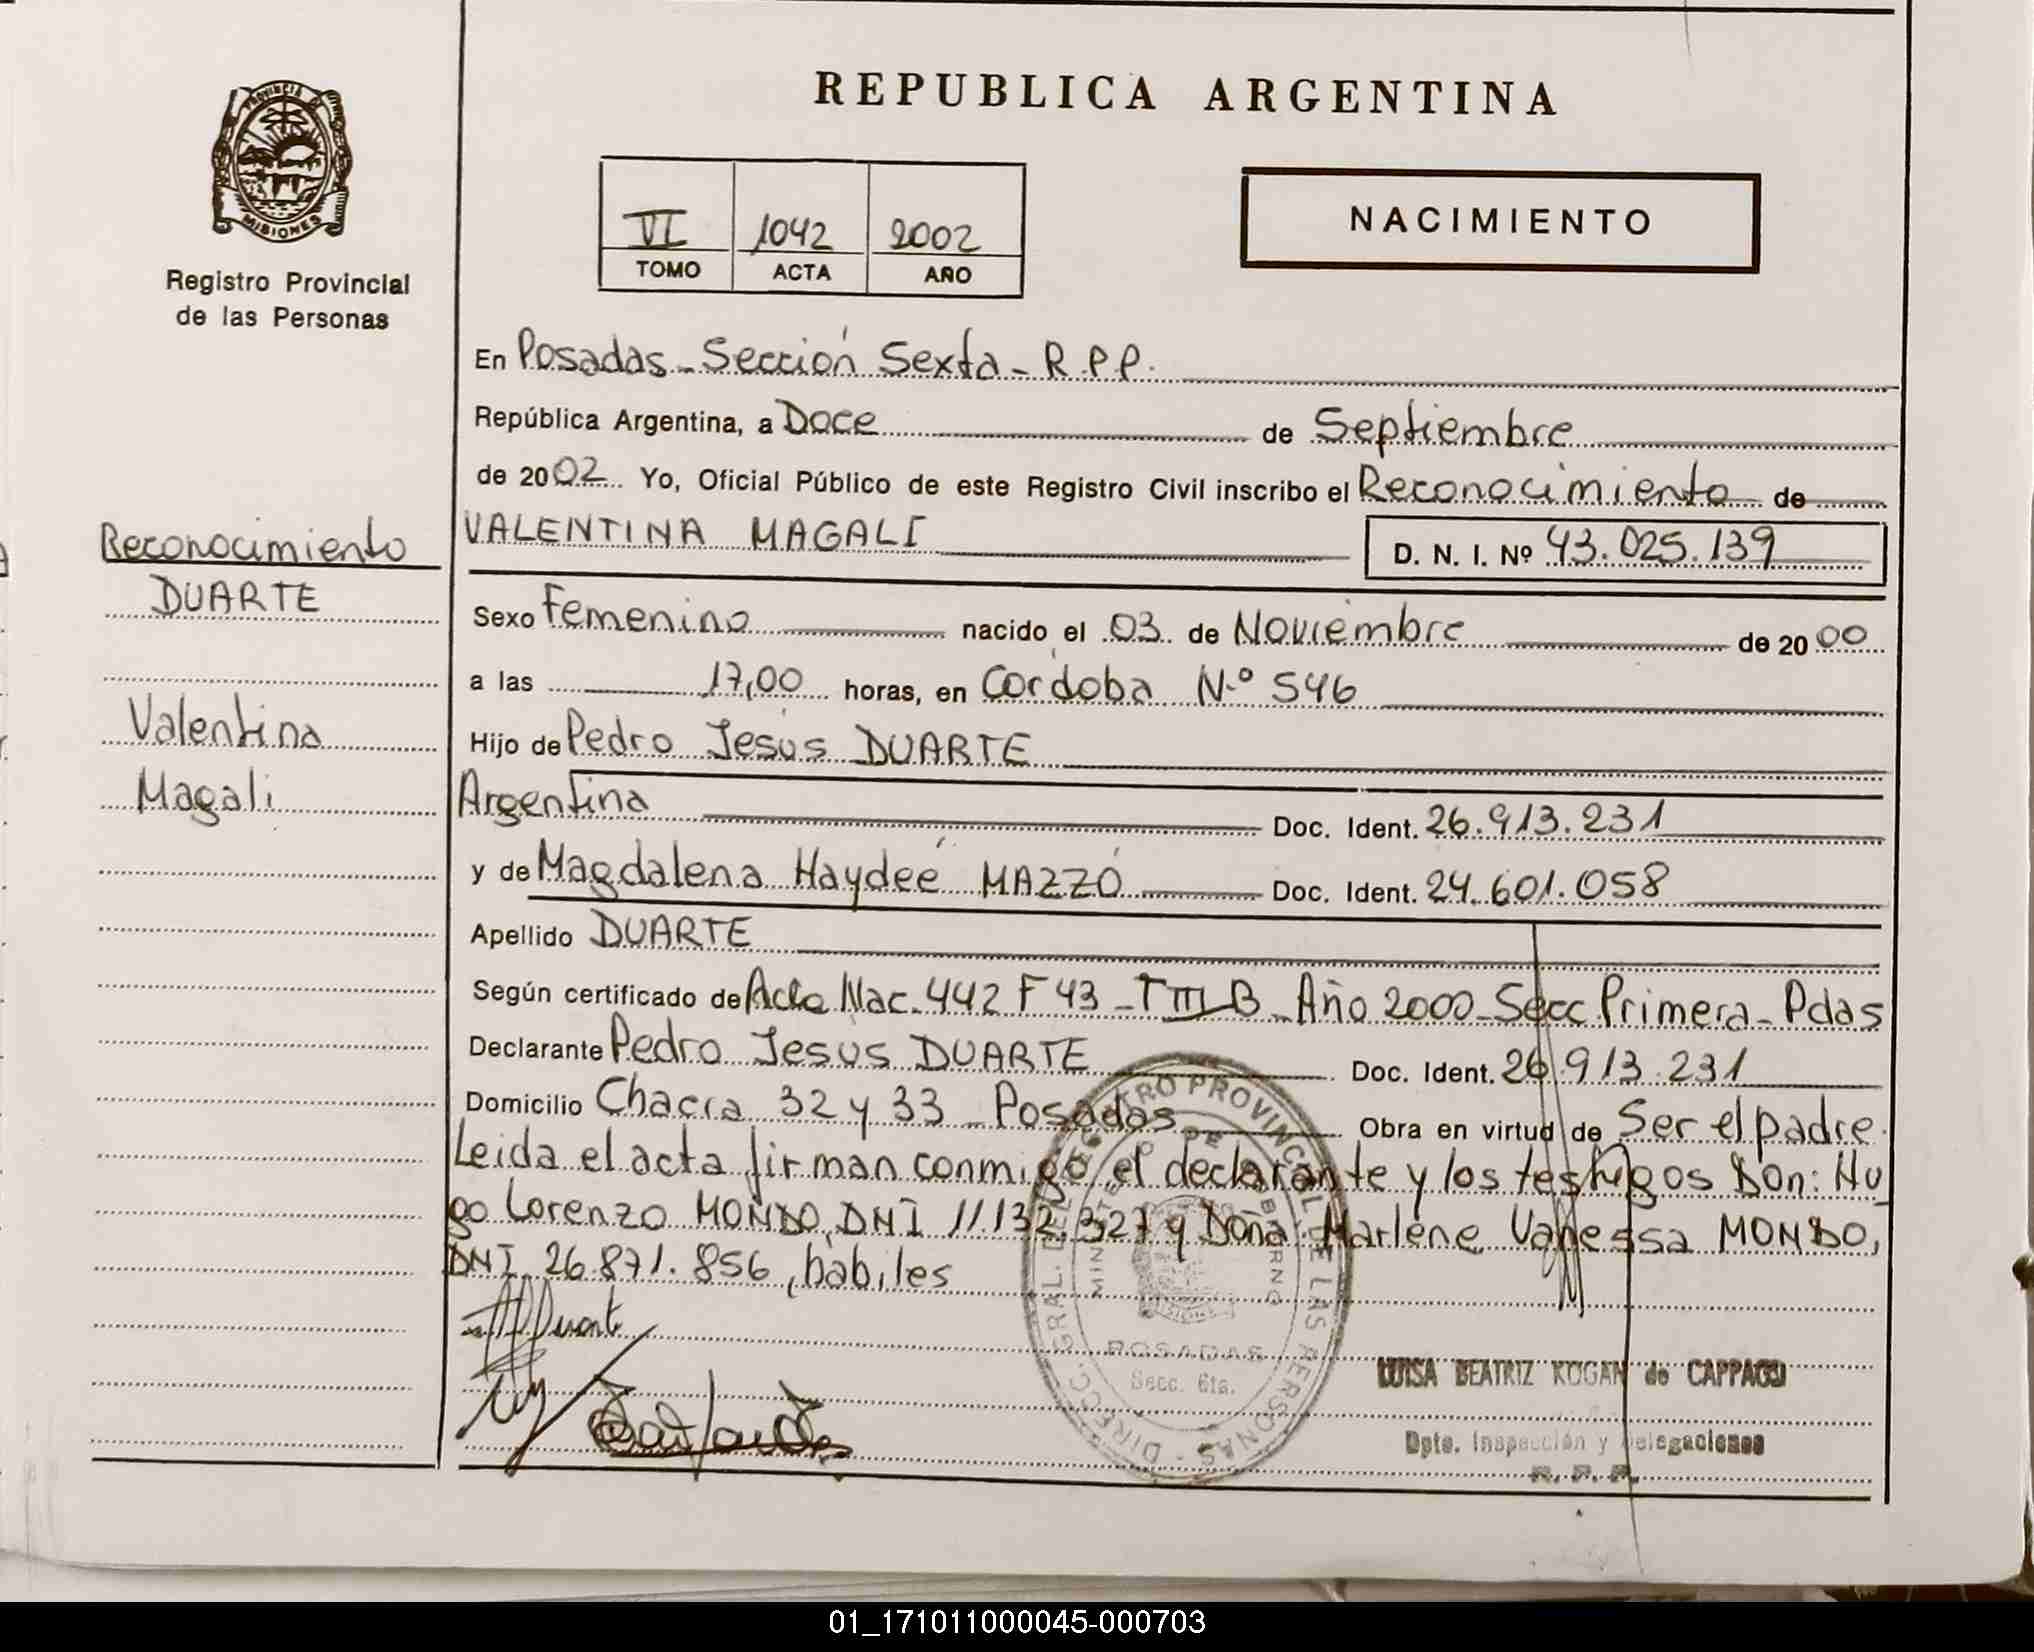 REPUBLICA ARGENTINA
PROVINCIA DE
MISIONES
Registro Provincial
de las Personas
VI 1042 2002
TOMO ACTA AÑO
NACIMIENTO
En Posadas - Sección Sexta - R.P.P.
República Argentina, a Doce de Septiembre
de 2002 Yo, Oficial Público de este Registro Civil inscribo el Reconocimiento de
VALENTINA MAGALI D. N. I. Nº 43.025.139
Reconocimiento
DUARTE
Valentina
Magali
Sexo Femenino nacido el 03 de Noviembre de 2000
a las 17,00 horas, en Córdoba N.º 546
Hijo de Pedro Jesús DUARTE
Argentina Doc. Ident. 26.913.231
y de Magdalena Haydeé MAZZÓ Doc. Ident. 24.601.058
Apellido DUARTE
Según certificado de Acta Nac. 442 F 43 - T III B - Año 2000 - Secc Primera - Pdas
Declarante Pedro Jesus DUARTE Doc. Ident. 26.913.231
Domicilio Chacra 32 y 33 - Posadas Obra en virtud de Ser el padre.
Leida el acta firman conmigo el declarante y los testigos Don: Hu-
go Lorenzo MONDO, DNI 11.132.327 y Doña: Marlene Vanessa MONDO,
DNI 26.871.856, habiles
DIRECC. GRAL. DEL REGISTRO PROVINCIAL DE LAS PERSONAS
MINISTERIO DE GOBIERNO
POSADAS
Secc. 6ta.
LUISA BEATRIZ KOGAN de CAPPAGU
Dpto. Inspección y Delegaciones
R. P. P.
01_171011000045-000703